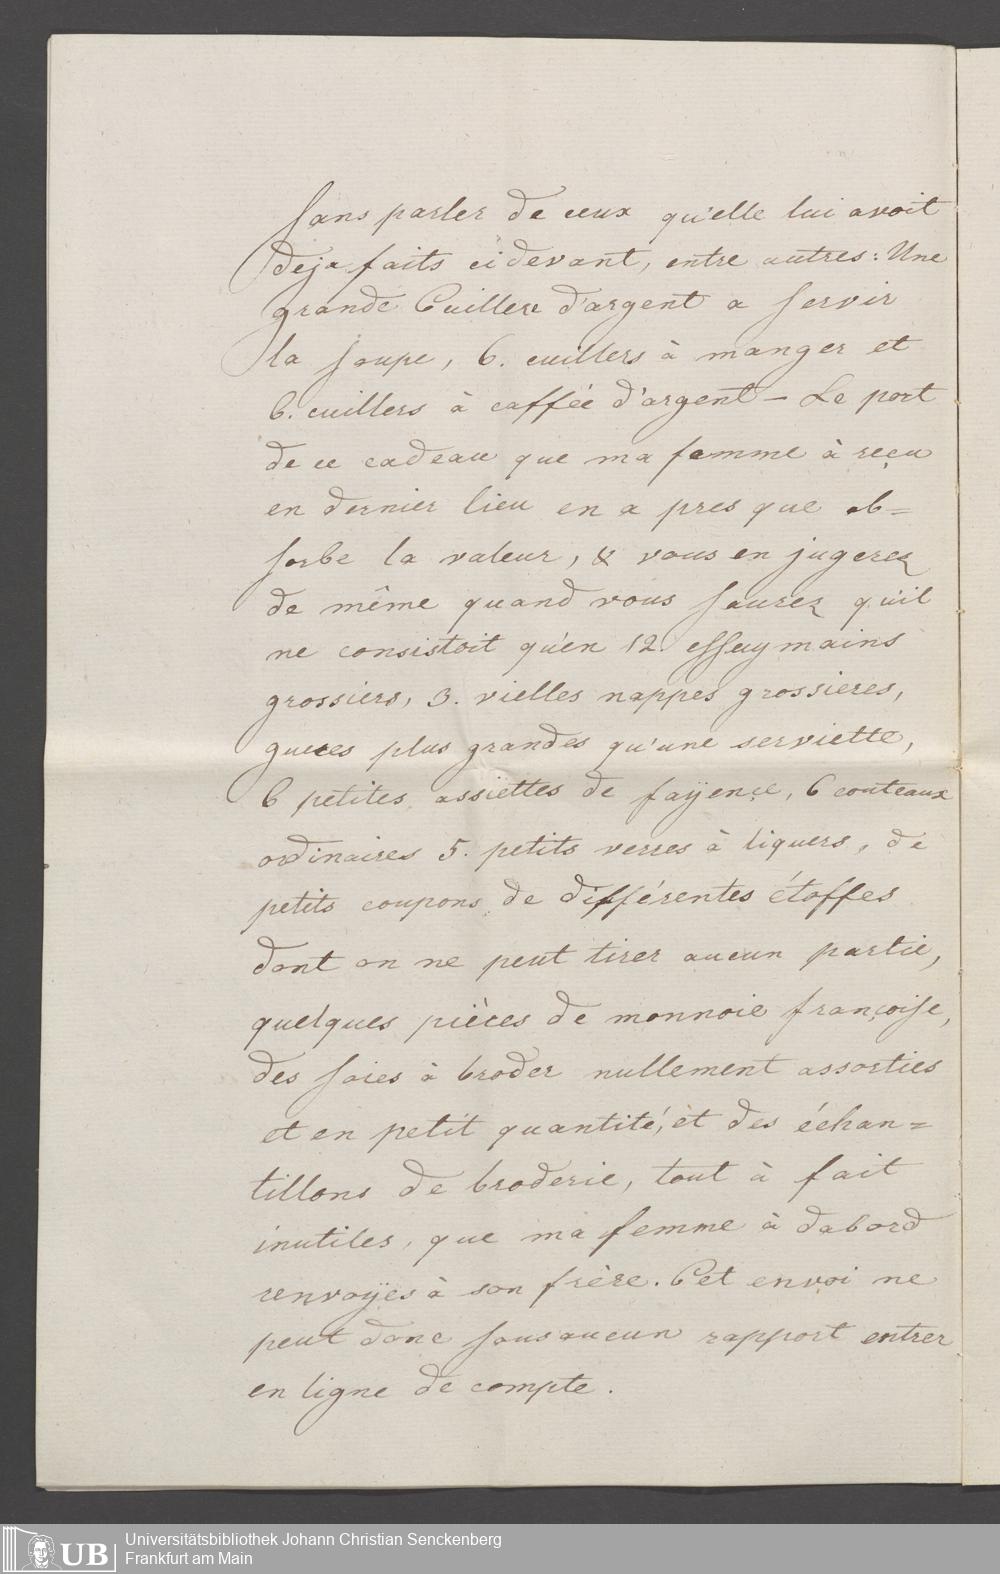 Sans parler de ceux qu'elle lui avoit
deja faits ci devant, entre autres: Une
grande Cuillere d'argent a servir
la soupe, 6. cuillers à manger et
6. cuillers à caffée d'argent – Le port
de ce cadeau que ma femme à reçu
en dernier lieu en a pres que ab=
sorbe la valeur, & vous en jugerez
de même quand vous saurez qu'il
ne consistoit qu'en 12. essuymains
grossiers, 3. vielles nappes grossieres,
gueres plus grandes qu'une serviette,
6 petites assiettes de fayençe, 6 couteaux
ordinaires 5. petits verres à liquers, de
petits coupons de différentes étoffes
dont on ne peut tirer aucun partie,
quelques pièces de monnoie françoise,
des soies à broder nullement assorties
et en petit quantité, et des échan=
tillons de broderie, tout à fait
inutiles, que ma femme à dabord
renvoÿes à son frère. Cet envoi ne
peut donc sous aucun rapport entrer
en ligne de compte.
UB
Universitätsbibliothek Johann Christian Senckenberg
Frankfurt am Main